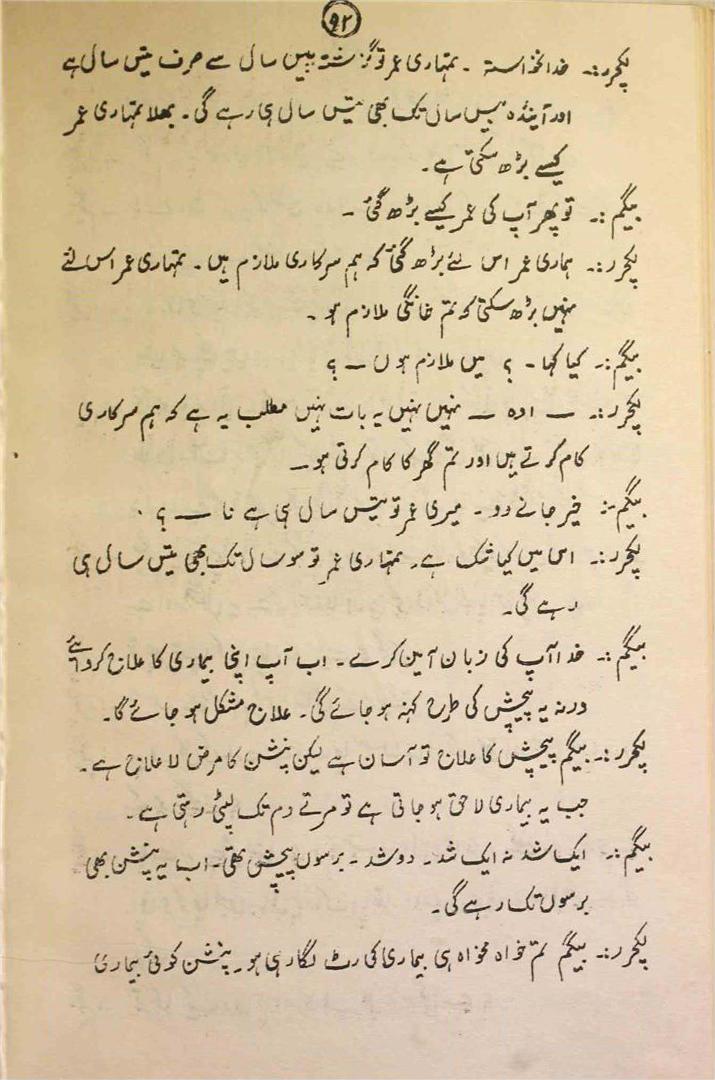 ۹۲
لکچرر:۔ خدانخواستہ ۔ تمہاری عمر تو گزشتہ بیس سال سے صرف تیس سال ہے
اور آیندہ بیس سال تک بھی تیس سال ہی رہے گی۔ بھلا تمہاری عمر
کیسے بڑھ سکتی ہے۔
بیگم:۔ تو پھر آپ کی عمر کیسے بڑھ گئی ۔
لکچرر:۔ ہماری عمر اس لئے بڑھ گئی کہ ہم سرکاری ملازم ہیں ۔ تمہاری عمر اس لئے
نہیں بڑھ سکتی کہ تم خانگی ملازم ہو ۔
بیگم:۔ کیا کہا ۔ ؟ میں ملازم ہوں ۔ ؟
لکچرر:۔ ــ اوہ ــ نہیں نہیں یہ بات نہیں مطلب یہ ہے کہ ہم سرکاری
کام کرتے ہیں اور تم گھر کا کام کرتی ہو۔
بیگم:۔ خیر جانے دو ۔ میری عمر تو تیس سال ہی ہے نا ــ ؟
لکچرر:۔ اس میں کیا شک ہے۔ تمہاری عمر تو سو سال تک بھی تیس سال ہی
رہے گی۔
بیگم:۔ خدا آپ کی زبان آمین کرے ۔ اب آپ اپنی بیماری کا علاج کروائیے
ورنہ یہ پیچش کی طرح کہنہ ہو جائے گی۔ علاج مشکل ہو جائے گا۔
لکچرر:۔ بیگم پیچش کا علاج تو آسان ہے لیکن پنشن کا مرض لا علاج ہے۔
جب یہ بیماری لاحق ہو جاتی ہے تو مرتے دم تک لپٹی رہتی ہے ۔
بیگم:۔ ایک شد نہ ایک شد۔ دو شد ۔ برسوں پیچش تھی۔ اب یہ پنشن بھی
برسوں تک رہے گی۔
لکچرر:۔ بیگم تم خواہ مخواہ ہی بیماری کی رٹ لگا رہی ہو۔ پنشن کوئی بیماری